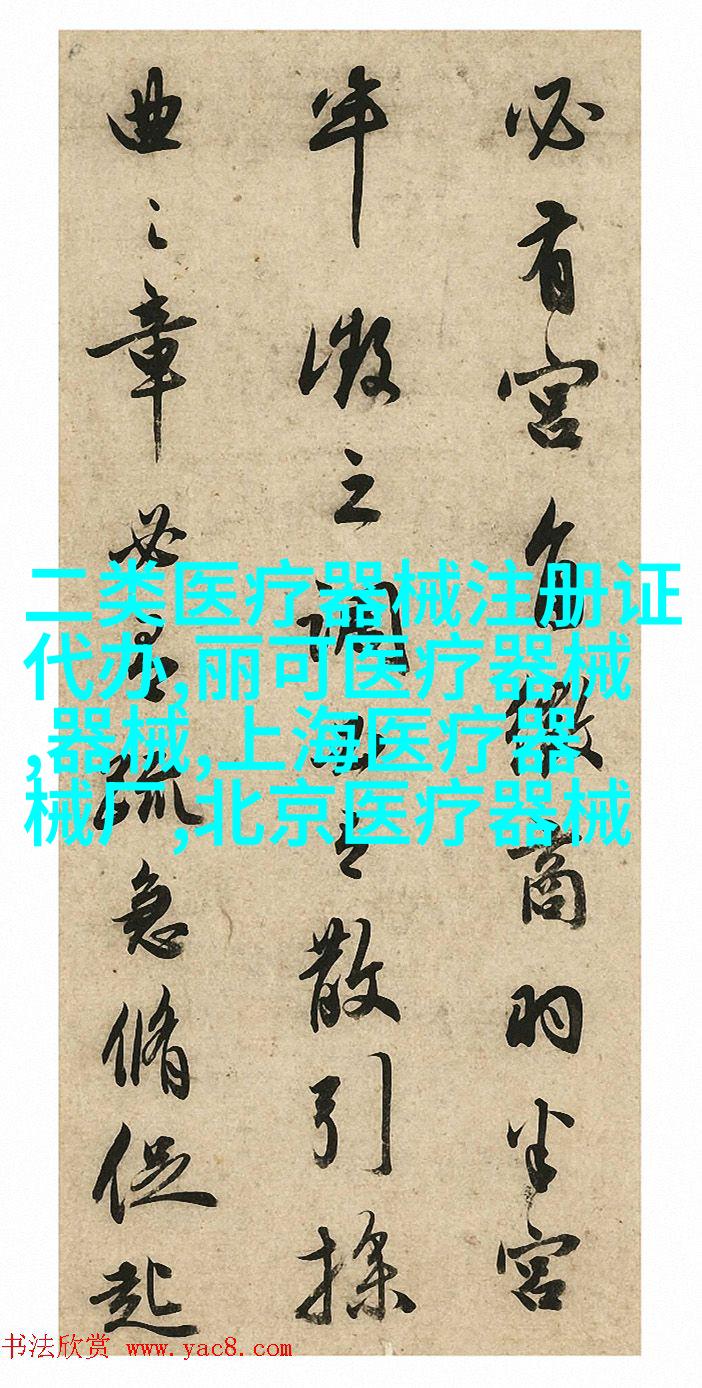 必有宮角徵商羽半宮
半徵之調散引操
曲之章疏急脩促起
二类医疗器械注册证
代办,丽可医疗器械
,器械,上海医疗器
械厂,北京医疗器械
书法欣赏 www.yac8.com